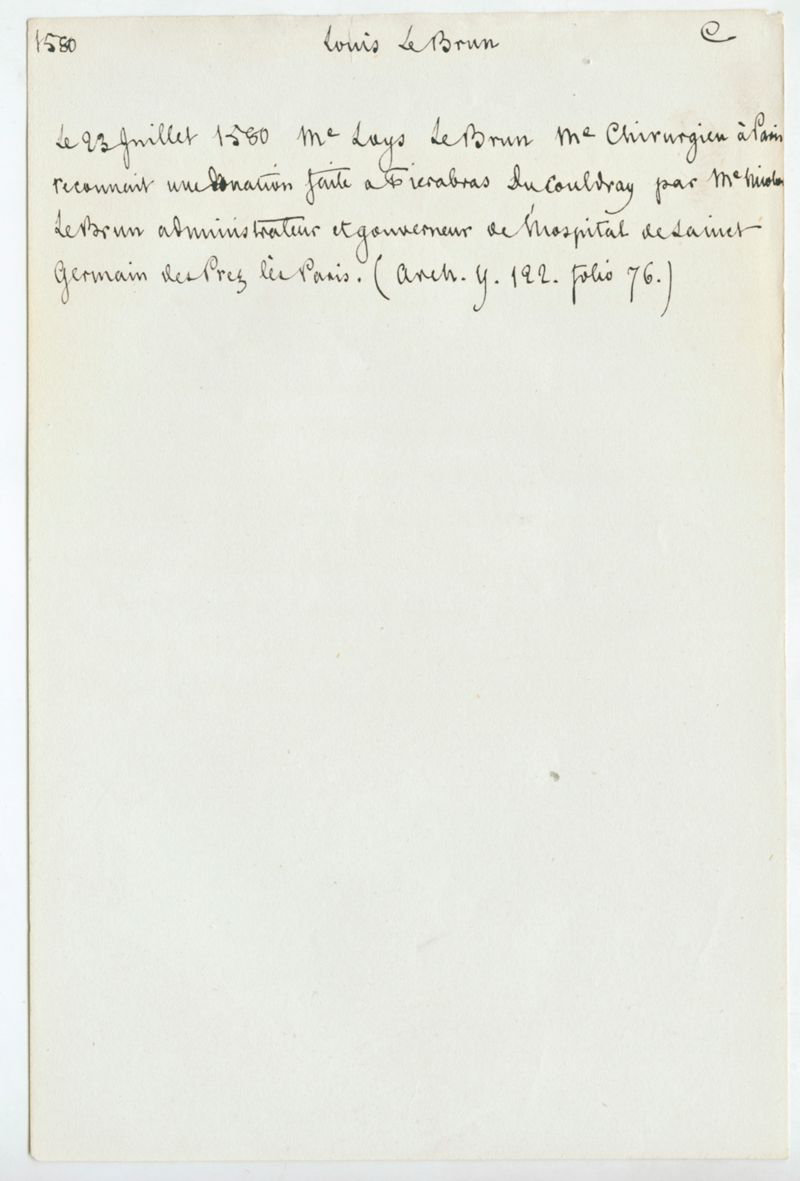 1580 Louis Le Brun C
Le 23 Juillet 1580 Me Loys Le Brun Me Chirurgien à Paris
reconnait une donation faite a Fierabras Du Couldray par Me Nicolas
Le Brun administrateur et gouverneur de l'hospital de Sainct
Germain des Prez lès Paris. (Arch. Y. 122. folio 76.)